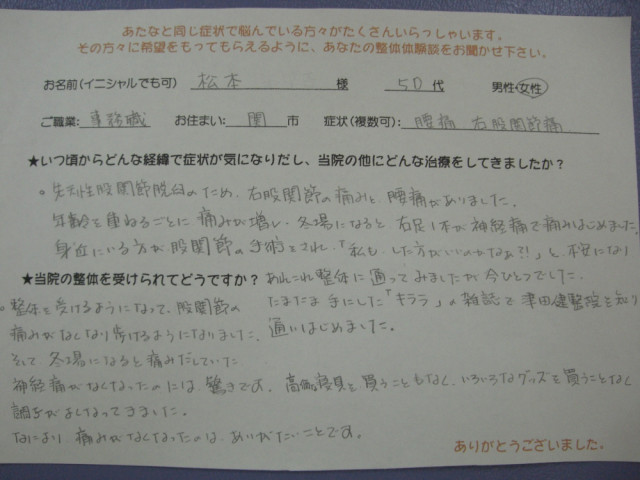 あなたと同じ症状で悩んでいる方々がたくさんいらっしゃいます。
その方々に希望をもってもらえるように、あなたの整体体験談をお聞かせ下さい。
お名前(イニシャルでも可) 松本 様 50代 男性・女性
ご職業: 事務職 お住まい: 関 市 症状(複数可): 腰痛 右股関節痛
★いつ頃からどんな経緯で症状が気になりだし、当院の他にどんな治療をしてきましたか?
。先天性股関節脱臼のため、右股関節の痛みと、腰痛がありました。
年齢を重ねるごとに痛みが増し、冬場になると、右足1本が神経痛で痛みはじめました。
身近にいる方が股関節の手術をされ、「私も、した方がいいのかなぁ?!」と不安になり
あれこれ整体に通ってみましたが今ひとつでした。
たまたま手にした「キララ」の雑誌で津田健整院を知り
通いはじめました。
★当院の整体を受けられてどうですか?
。整体を受けるようになって、股関節の
痛みがなくなり歩けるようになりました。
そして冬場になると痛みだしていた
神経痛がなくなったのには驚きです。高価寝具を買うこともなく、いろいろなグッズを買うことなく
調子がよくなってきました。
なにより痛みがなくなったのは、ありがたいことです。
ありがとうございました。